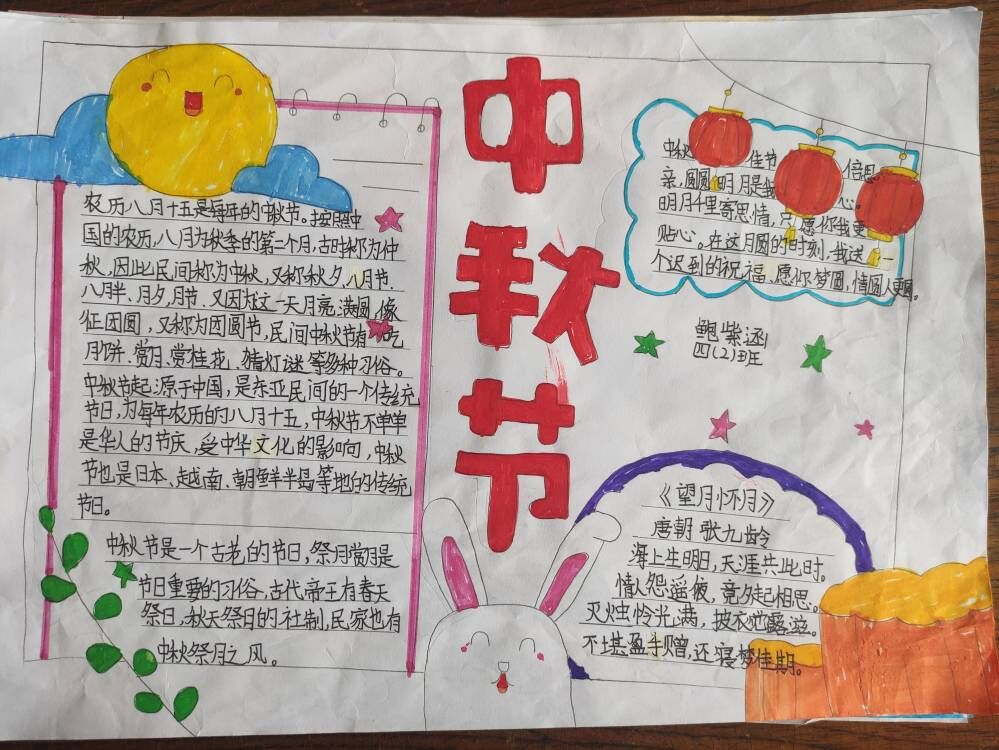 中秋节
农历八月十五是每年的中秋节。按照中
国的农历,八月为秋季的第二个月,古时称为仲
秋,因此民间称为中秋,又称秋夕、八月节、
八月半、月夕、月节、又因为这一天月亮满圆,像
征团圆,又称为团圆节,民间中秋节有吃
月饼、赏月、赏桂花、猜灯谜等多种习俗。
中秋节起源于中国,是东亚民间的一个传统
节日,为每年农历的八月十五,中秋节不单单
是华人的节庆,受中华文化的影响,中秋
节也是日本、越南、朝鲜半岛等地的传统
节日。
中秋节是一个古老的节日,祭月赏月是
节日重要的习俗。古代帝王有春天
祭日,秋天祭月的社制,民家也有
中秋祭月之风。
中秋佳节倍思
亲,圆圆明月是我心。
明月千里寄思情,只愿你我更
贴心。在这月圆的时刻,我送一
个迟到的祝福,愿你梦圆,情圆人更圆。
鲍紫涵
四(2)班
《望月怀月》
唐朝 张九龄
海上生明日,天涯共此时。
情人怨遥夜,竟夕起相思。
灭烛怜光满,披衣觉露滋。
不堪盈手赠,还寝梦佳期。